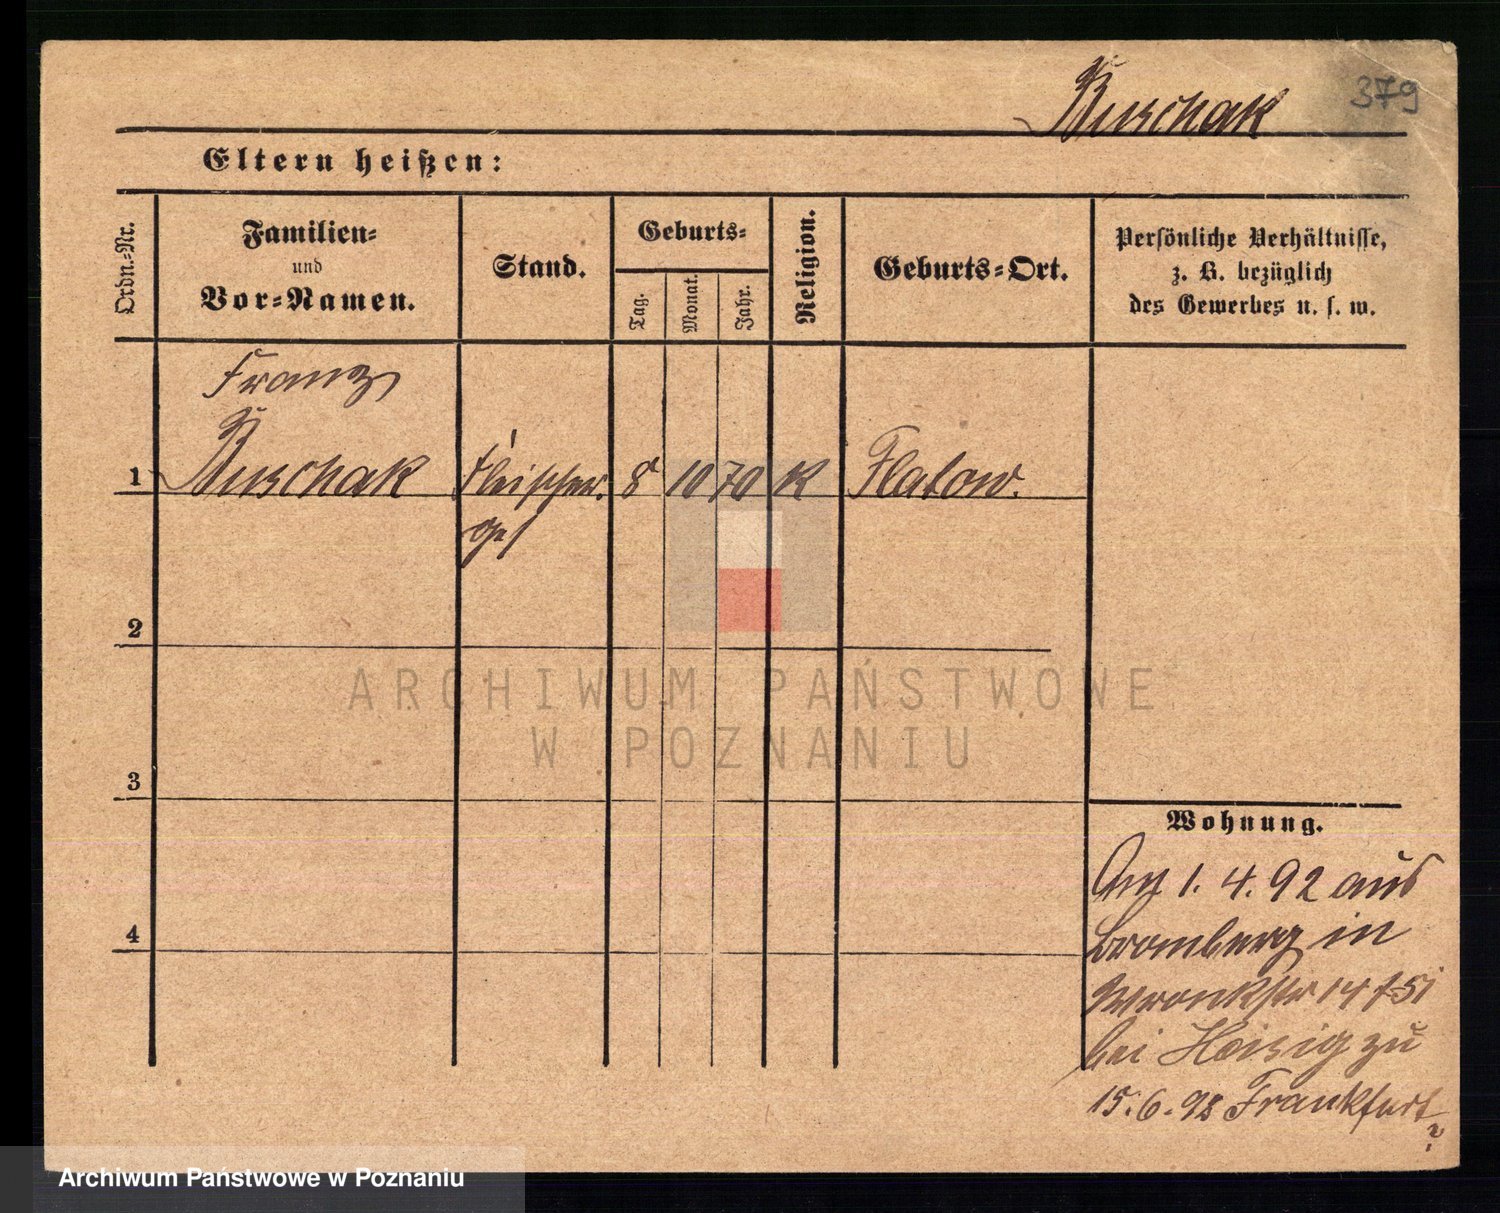 Buschak
379
Eltern heißen:
Ordn.-Nr.
Familien-
und
Vor-Namen.
Stand.
Geburts-
Tag.
Monat.
Jahr.
Religion.
Geburts-Ort.
Persönliche Verhältnisse,
z. B. bezüglich
des Gewerbes u. s. w.
Franz
1 Buschak Fleischer 8 10 70 K Flatow.
ges
2
ARCHIWUM PAŃSTWOWE
W POZNANIU
3
Wohnung.
1. 4. 92 aus
4
Bromberg in
Wronkstr 14
bei Hoisig zu
15. 6. 92 Frankfurt
?
Archiwum Państwowe w Poznaniu